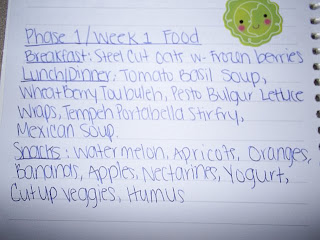 Phase 1/Week 1 Food
Breakfast: Steel Cut oats w- Frozen berries
Lunch/Dinner: Tomato Basil Soup,
Wheat Berry Toubuleh, Pesto Bulgur Lettuce
Wraps, Tempeh Portabella Stirfry,
Mexican Soup.
Snacks: Watermelon, Apricots, Oranges,
Bananas, Apples, Nectarines, Yogurt,
Cut up veggies, Humus